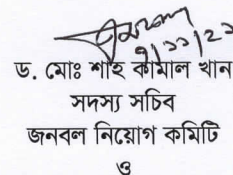 ৭/১১/২২
ড. মোঃ শাহ কামাল খান
সদস্য সচিব
জনবল নিয়োগ কমিটি
ও